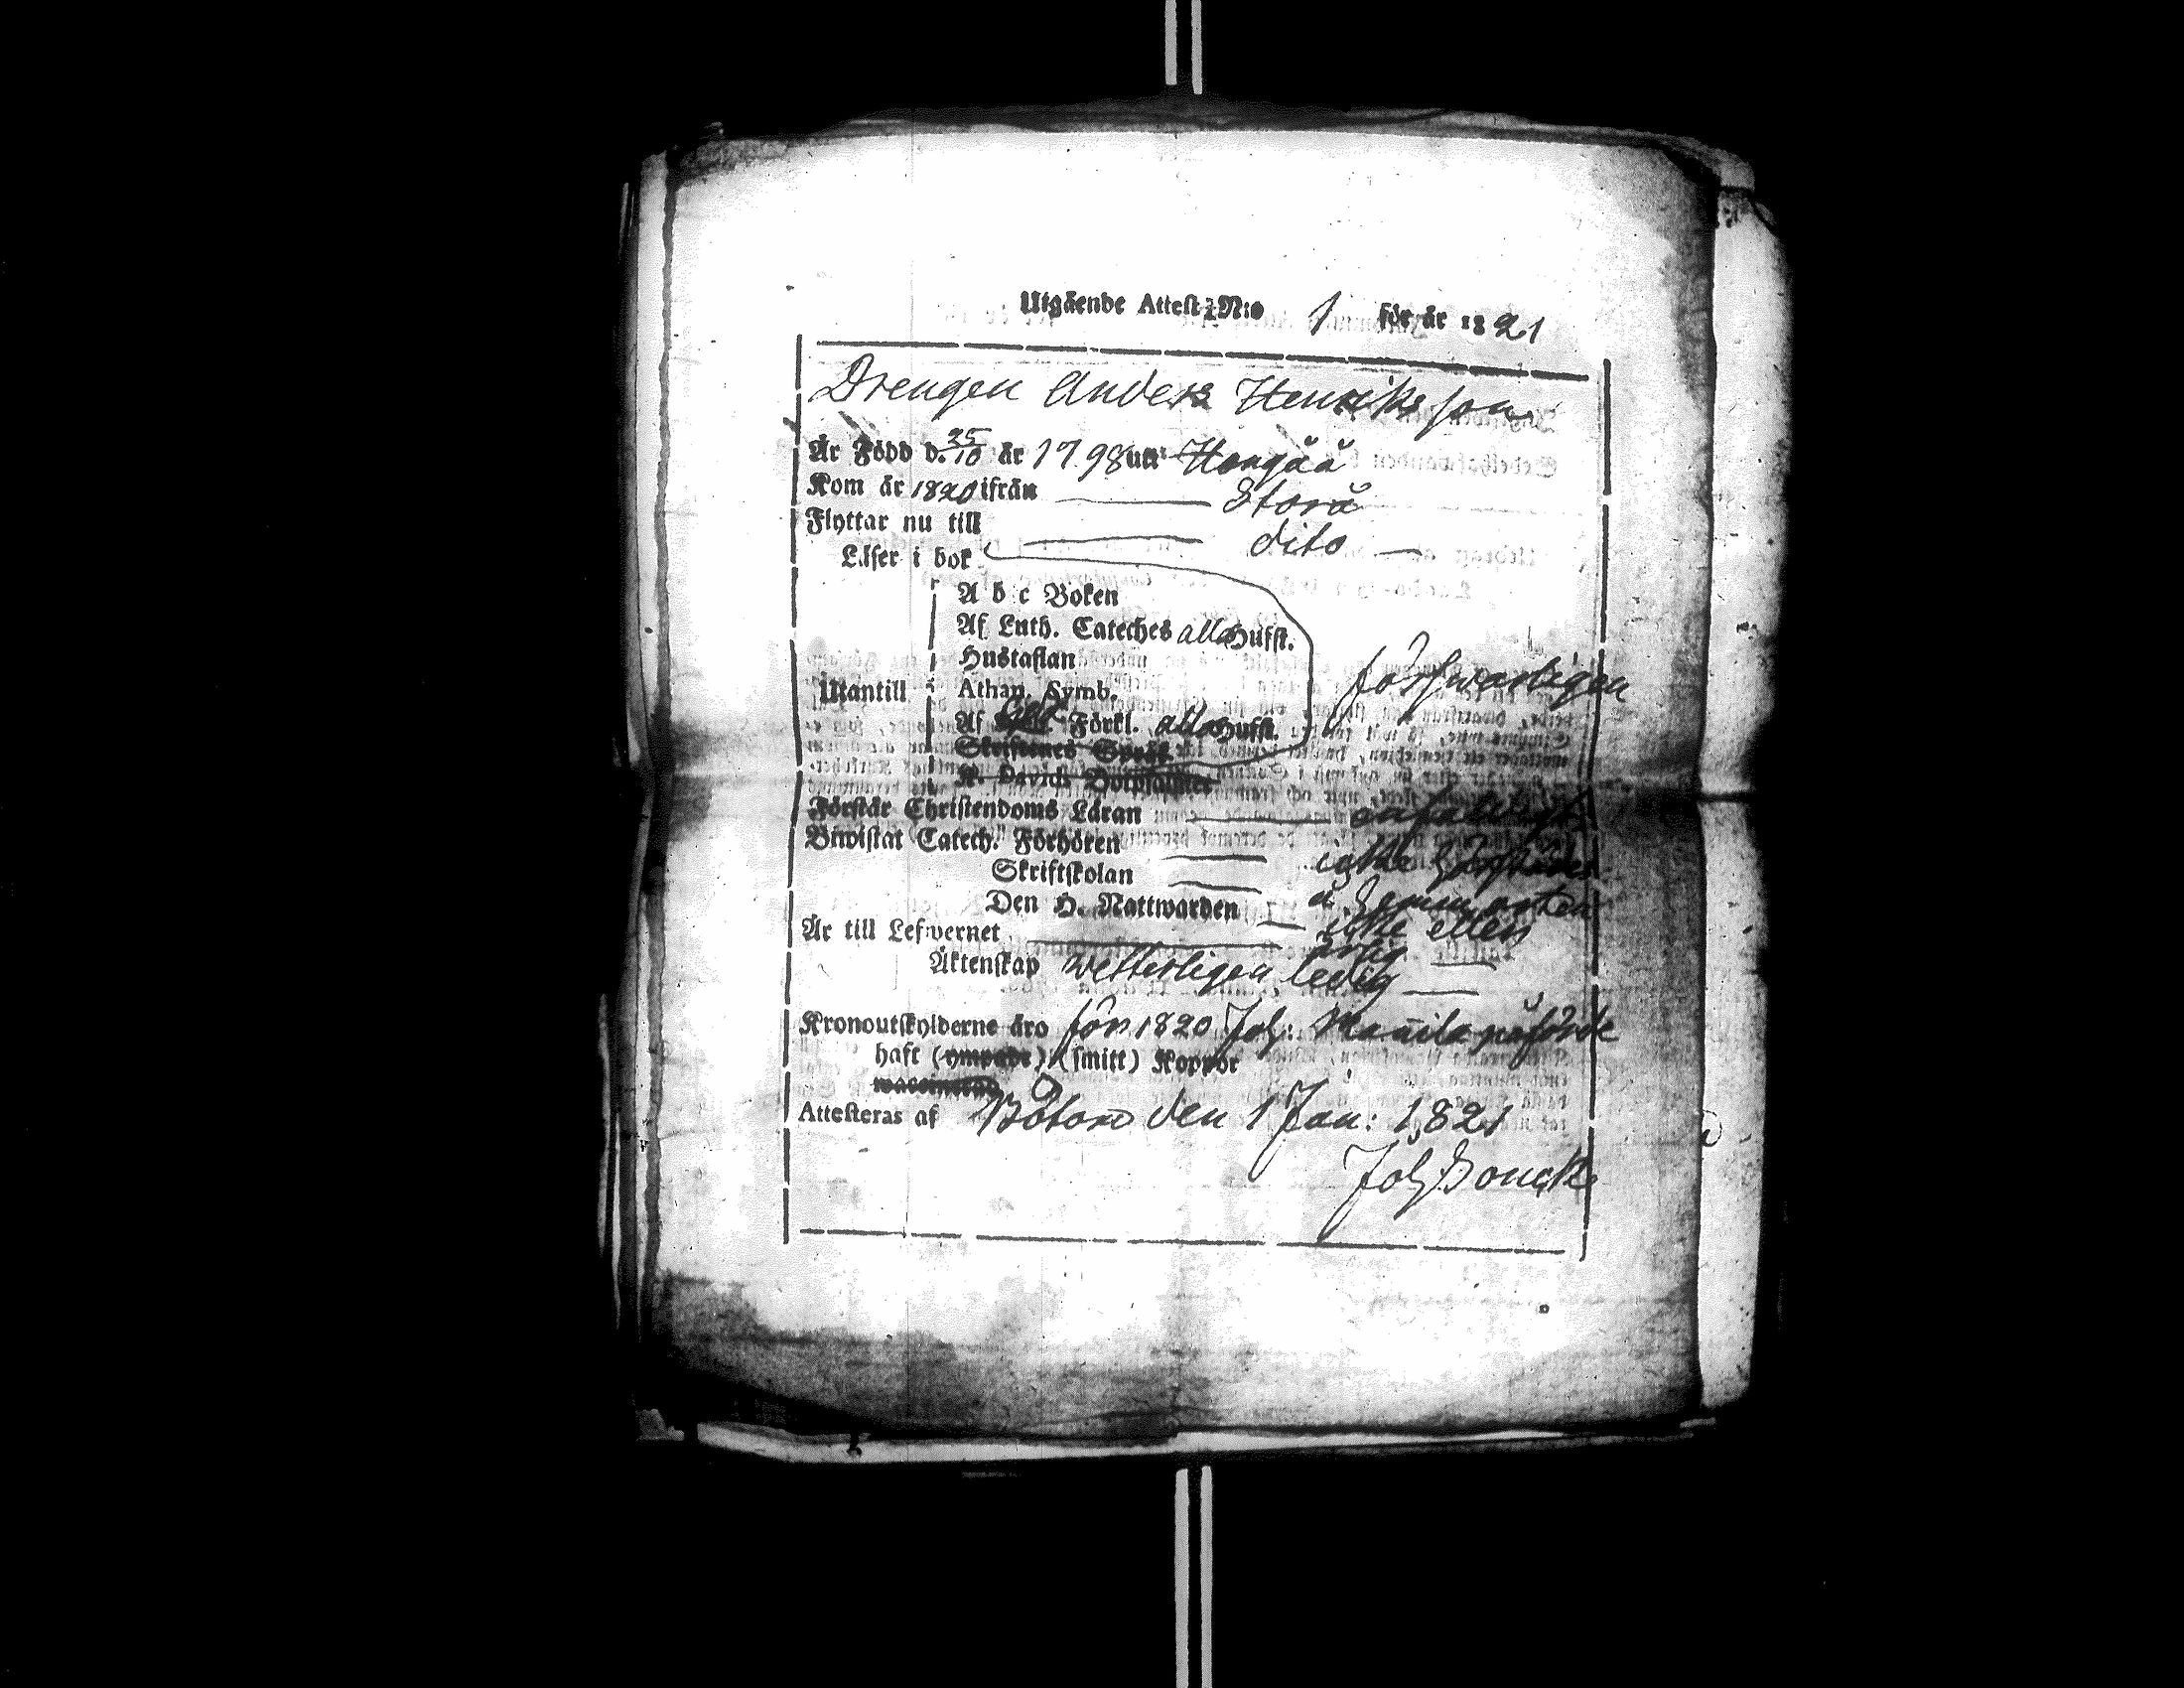 Utgående Attest N:o 1 för år 1821
Drengen Anders Henriksson
Är Född d. 25/10 år 1798 uti Hongåå
Kom år 1820 ifrån Storå
Flyttar nu till dito
Läser i bok
A b c Boken
Af Luth. Cateches alla Hufst.
Hustaflan
Utantill Athan. Symb. förswarligen
Af Förkl. alla Hufst.
Skriftenes Språk
K. Davids Botpsalmer
Förstår Christendoms Läran enfaldigt
Biwistat Catech. Förhören icke
Skriftskolan
Den H. Nattwarden icke eller
Är till Lefwernet ärlig
Äktenskap wetterligen ledig
Kronoutskylderne äro för 1820 Joh: påförde
haft (ympade) (smitt) Koppor
waccinerad
Attesteras af Bötom den 1 Jan: 1821
Joh